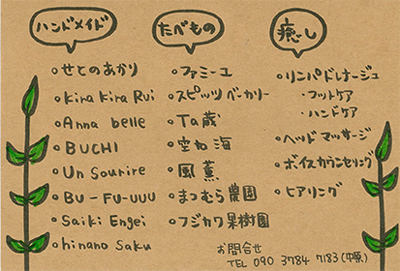 ハンドメイド
・せとのあかり
・kira kira Rui
・Anna belle
・BUCHI
・Un Sourire
・BU-FU-UUU
・Saiki Engei
・hinano saku
たべもの
・ファミーユ
・スピッツベーカリー
・Ta蔵
・空ね海
・風薫
・まつむら農園
・フジカワ果樹園
癒し
・リンパドレナージュ
・フットケア
・ハンドケア
・ヘッドマッサージ
・ボイスカウンセリング
・ヒアリング
お問合せ
TEL 090 3784 7183(中原)